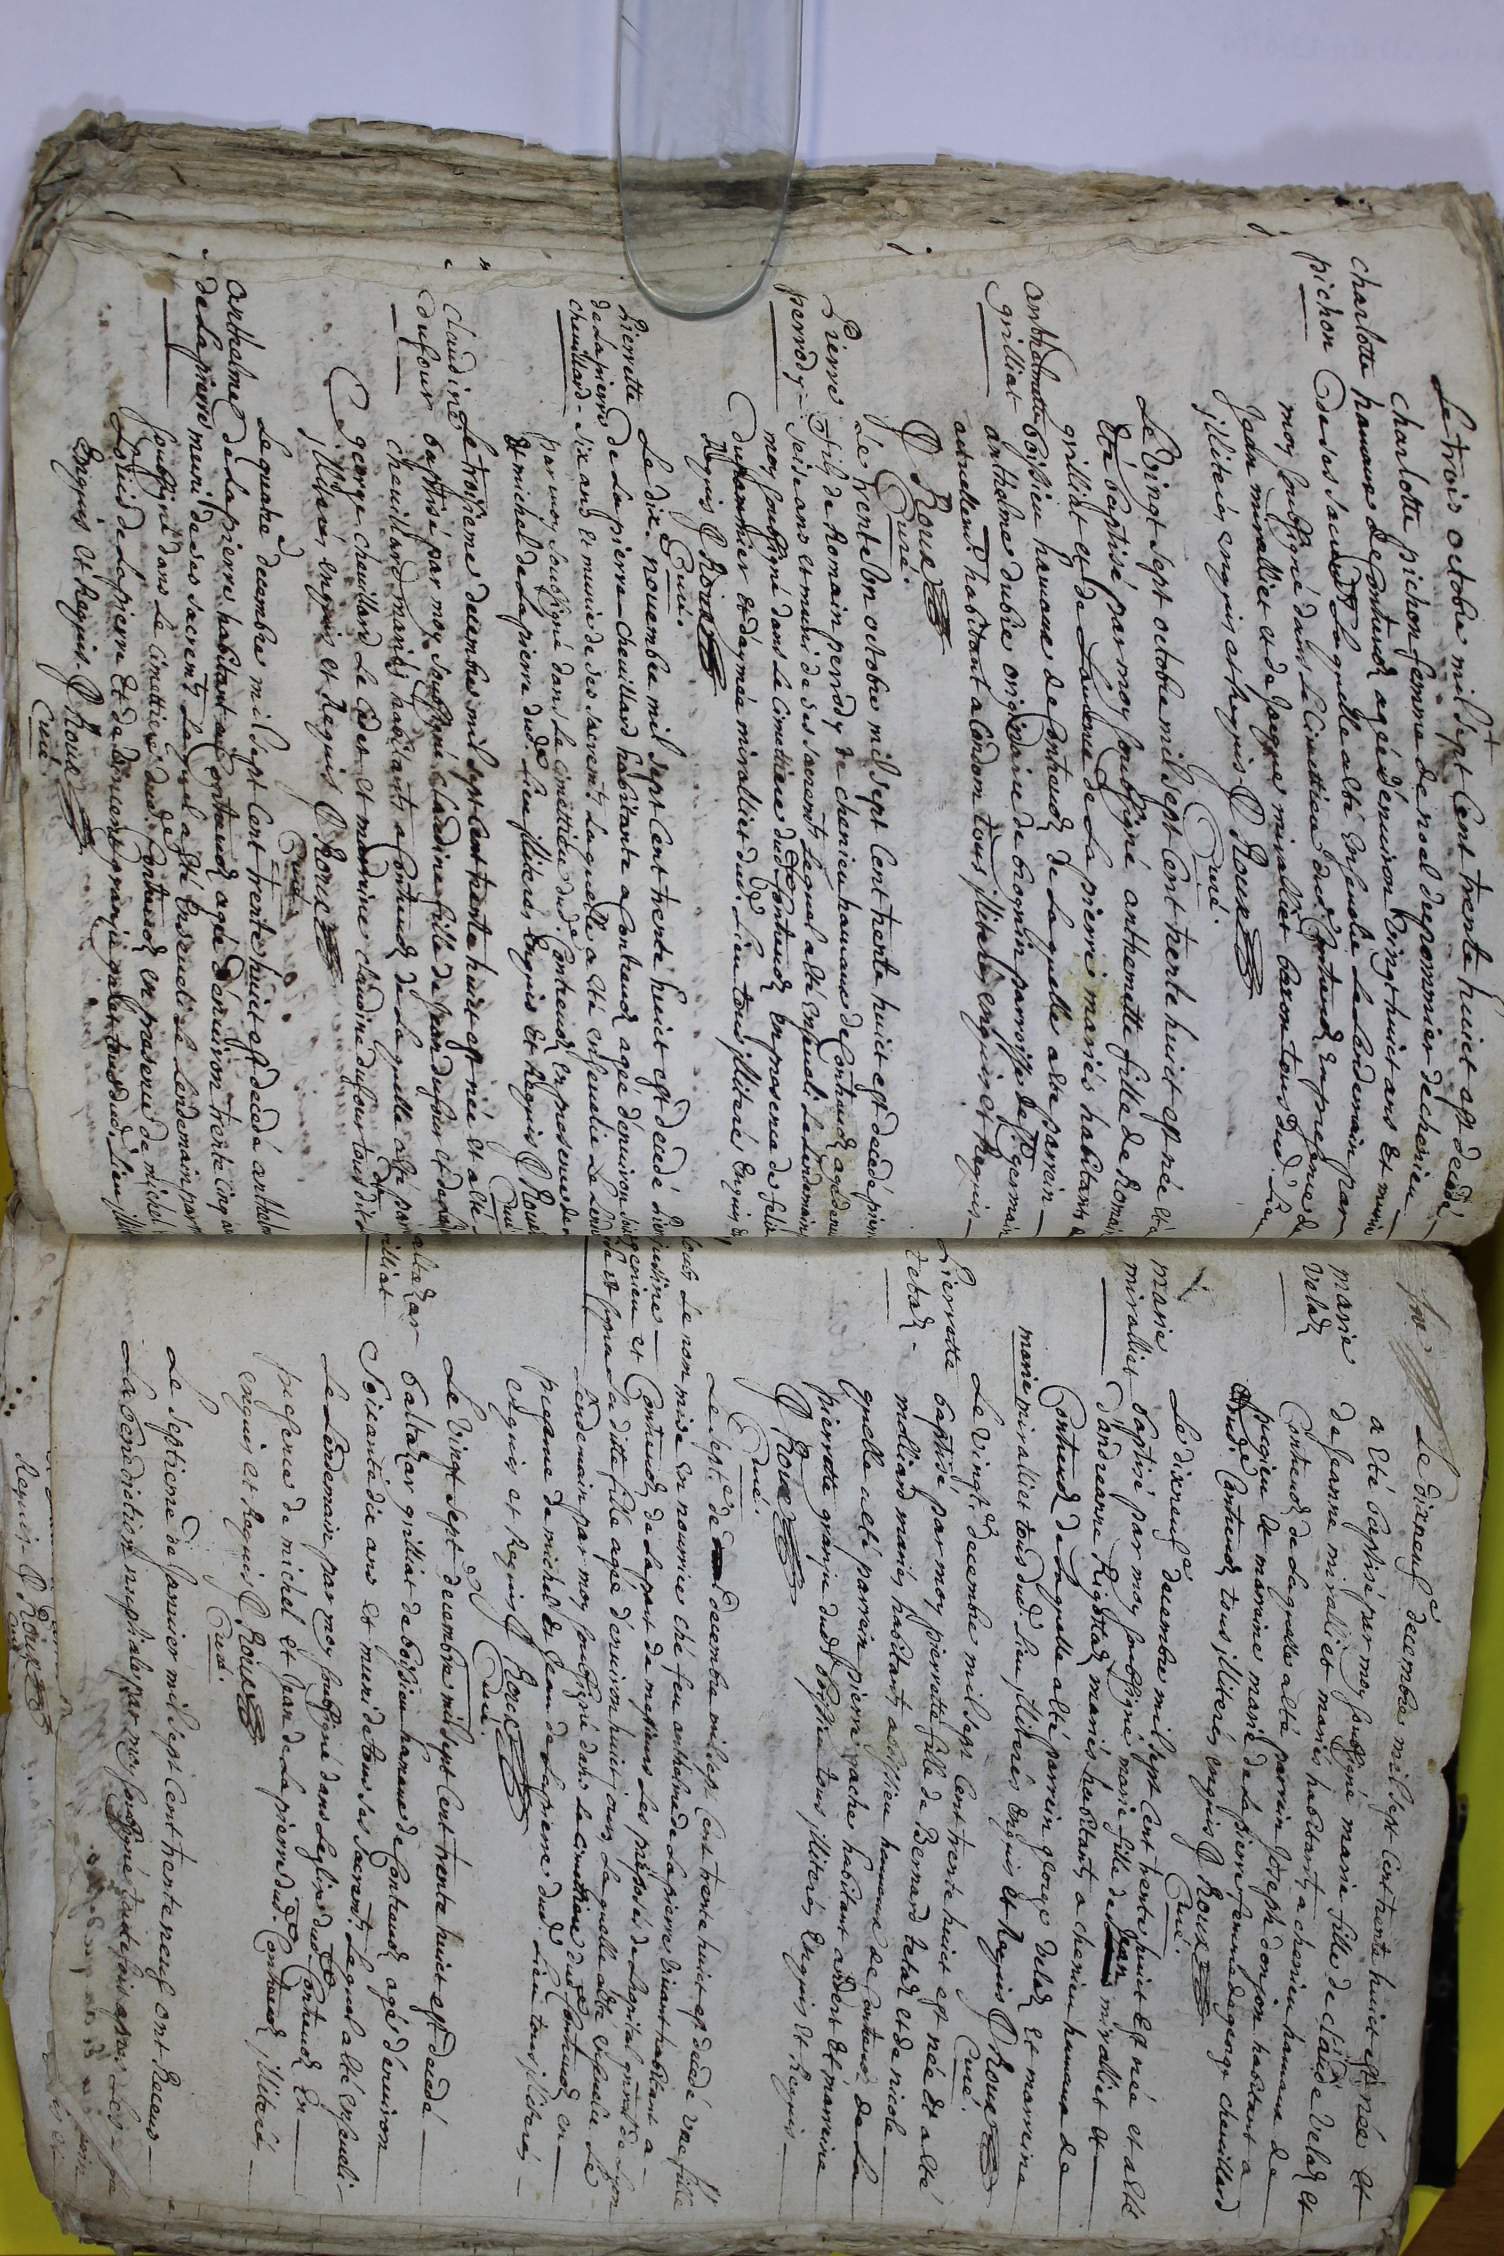 Le trois octobre mil sept Cent trente huict est decedé
charlotte pichon femme de noel depommier de chenieu
charlotte
pichon
hameau de Contreuoz agée d'enuiron vingt huict ans et munie
de ses sacremts Laquelle a esté Enseuelie Le Lendemain par
moy soubsigné dans Le Cimettiere dud. Contreuoz En presence de
Jean miralliet et de Jacques miralliet baron tous dud. Lieu
illiterés enquis et Requis P Roux
Curé.
Le vingt sept octobre mil sept Cent trente huict est née et a
été baptisé par moy soubsigné anthelmette fille de Romain
anthelmette
grilliet
grilliet et de Laurence de La pierre mariés habitants a
boissieu hameau de Contreuoz de Laquelle a esté parrein
anthelme dubre originaire de brognin parroisse de st. germain
actuellemt. habitant a Condom tous illiterés enquis et Requis
P Roux
Curé.
Le trente un octobre mil sept Cent trente huict est décédé pierre
Pierre
perrody
fils de Romain perrody de chenieu hameau de Contreuoz agé denui
seise ans et muni de ses sacremts Lequel a esté Enseueli Le Lendemain
moy soubsigné dans Le Cimettiere dud. Contreuoz En presence de felix
dupommier et d'aymée miralliet dud. Lieu tous illiterés Enquis &
Requis P Roux
Curé.
Le dix nouembre mil sept Cent trente huict est decedé
Pierrette
de Lapierre
cheuillard
de La pierre cheuillard habitante a Contreuoz agée d'enuiron
dix ans et munie de ses sacremts Laquelle a esté enseuelie Le Lend
par moy soubsigné dans Le Cimettiere dud. Contreuoz en presence de
et michel de La pierre dud. Lieu illiterés Enquis et Requis P Roux
Curé
Claudine
dufour
Le troisieme decembre mil sept Cent trente huict est née et a été
baptisé par moy soubsigné claudine fille de Jean dufour et de
cheuillard mariés habitants a Contreuoz de Laquelle a esté par
george cheuillard Le Cadet et marraine claudine dufour tous dud.
illiterés enquis et Requis P Roux
Curé
Le quatre decembre mil sept Cent trente huict est decedé anthelme
anthelme
de Lapierre
de La pierre habitant a Contreuoz agé d'enuiron trente cinq ans
muni de ses sacremts Lequel a esté Enseueli Le Lendemain par
soubsigné dans Le Cimettiere dud. Contreuoz en presence de michel
Louis de Lapierre et de
Enquis et Requis. P Roux
Curé
Le dixneuf decembre mil sept Cent trente huict est née et
marie
Velaz
a été baptisé par moy soubsigné marie fille de claude Velaz et
de Jeanne miralliet mariés habitants a chenieu hameau de
Contreuoz de Laquelle a esté parrein Joseph donjon habitant a
pugieu et marraine marie de Lapierre femme de george cheuillard
dud. Contreuoz tous illiterés enquis P Roux
Curé.
Le dixneuf decembre mil sept Cent trente huict est née et a esté
marie
miralliet
baptisé par moy soubsigné marie fille de Jean miralliet et
d'andreanne Rigottaz mariés habitants a chenieu hameau de
Contreuoz de Laquelle a esté parrein george Velaz et marreine
marie miralliet tous dud. Lieu illiterés Enquis et Requis P Roux
Curé.
Le vingt decembre mil sept Cent trente huict est née et a esté
Pierrette
tebaz
baptisé par moy pierrette fille de Bernard tebaz et de nicole
molliard mariés habitants a boissieu hameau de Contreuoz de La
quelle a esté parrein pierre pache habitant a Andert et marreine
pierrette grange dud. boissieu tous illiterés Enquis et Requis
P Roux
Curé.
Le sept de decembre mil sept Cent trente huict est decedé vne fille
mise en nourrice ché feu anthelme de La pierre viuant habitant a
Contreuoz de La part de messieurs Les préposés de Lhopital general de Lyon
La ditte fille agée d'enuiron huict jours Laquelle a esté Enseuelie Le
Lendemain par moy soubsigné dans Le Cimettiere dud. Contreuoz en
presence de michel et Jean de Lapierre dud. Lieu tous illiterés
enquis et Requis P Roux
Curé.
Le vingt sept decembre mil sept Cent trente huict est decedé
baltazar grilliet de boissieu hameau de Contreuoz agé d'enuiron
soixante dix ans et muni de tous ses Sacremts Lequel a esté Enseueli
Le Lendemain par moy soubsigné dans Leglise dud. Contreuoz En
presence de michel et Jean de La pierre dud. Contreuoz illiterés
enquis et Requis P Roux
Curé.
Le septieme de Januier mil sept Cent trente neuf ont Receu
La benediction nuptiale par moy soubsigné toutefois apres Les
Requis P Roux
Curé